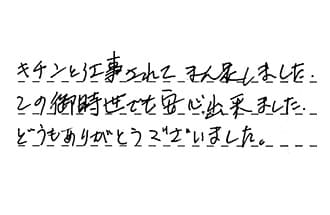 キチンと工事されて まん足しました.
この御時世でも安心出来ました.
どうもありがとうございました。